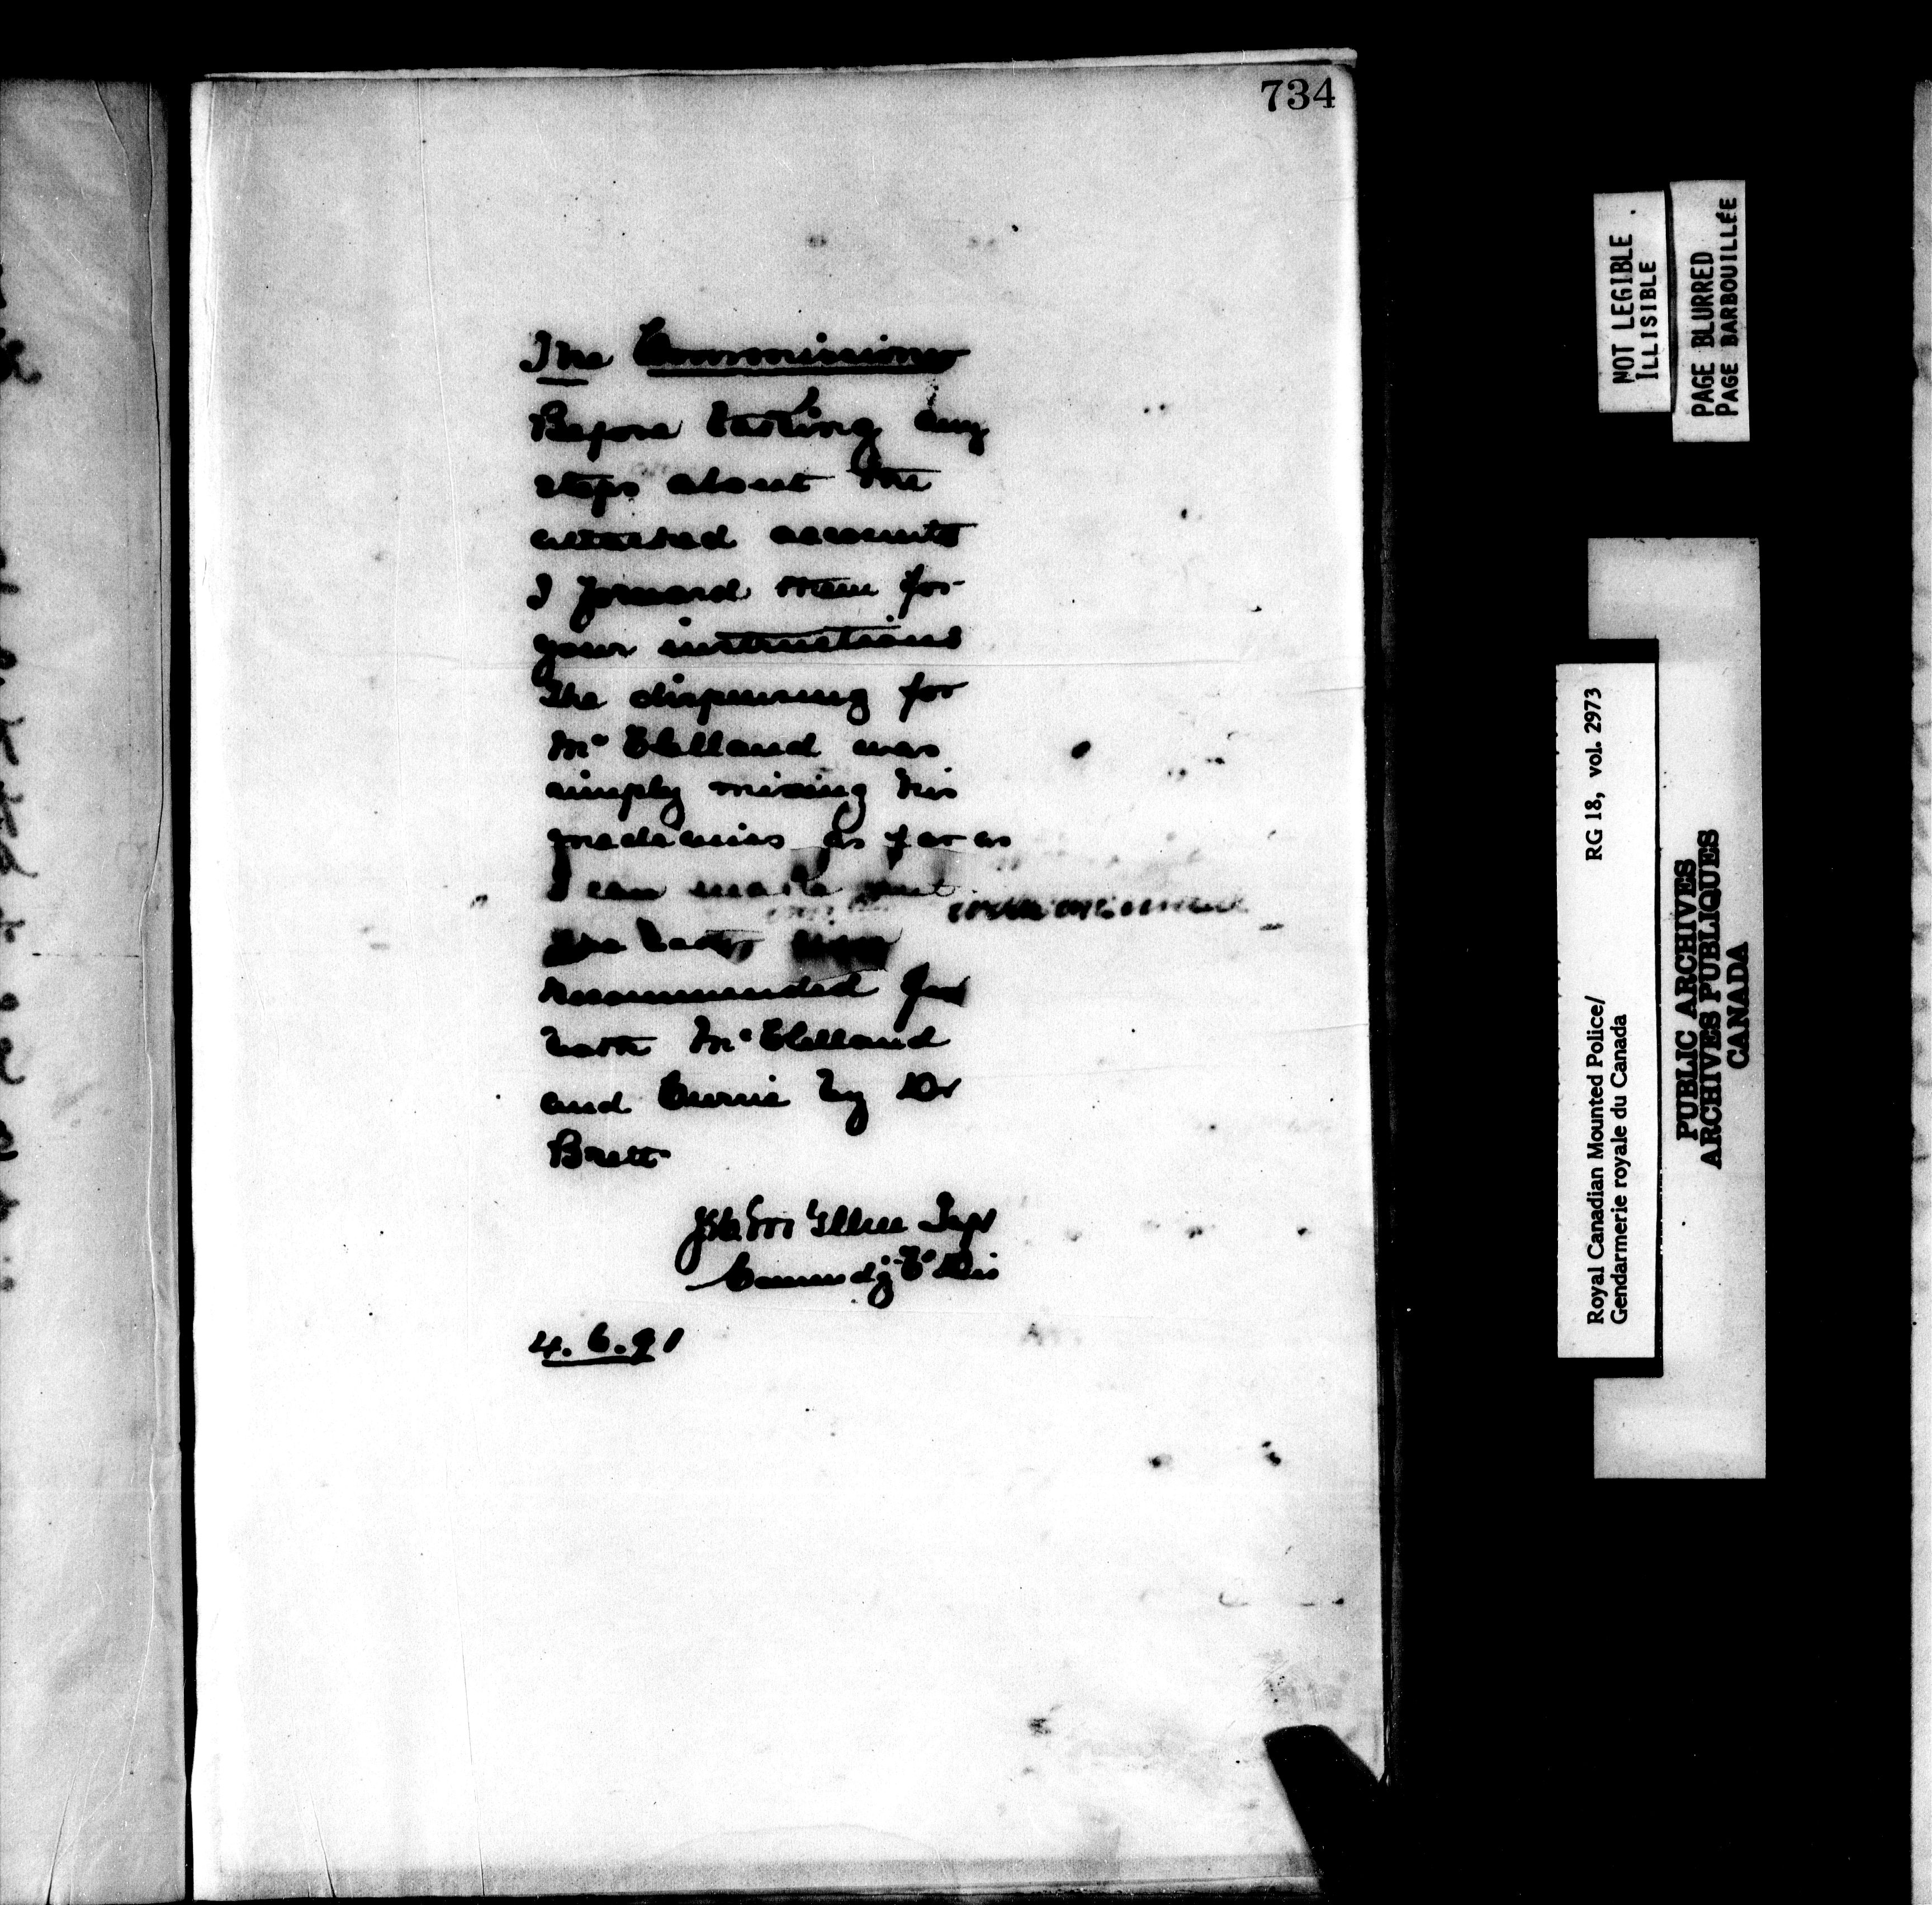 734
The Commissioner
Before taking any
steps about the
attached accounts
I forward them for
your instructions
The dispensing for
McClelland was
simply mixing his
medecines as far as
I can make out
The baths
recommended for
both McClelland
and Currie by Dr
Brett
Supt
Commdg "E" Div
4.6.91
NOT LEGIBLE
ILLISIBLE
PAGE BLURRED
PAGE BARBOUILLÉE
RG 18, vol. 2973
Royal Canadian Mounted Police/
Gendarmerie royale du Canada
PUBLIC ARCHIVES
ARCHIVES PUBLIQUES
CANADA